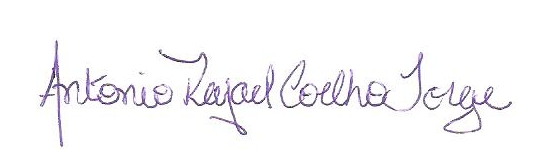 Antonio Rafael Coelho Jorge